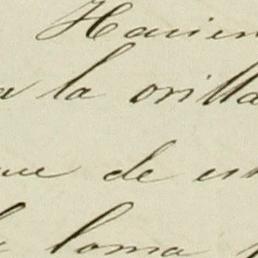 Hacien
a la orilla
ue de es
la loma